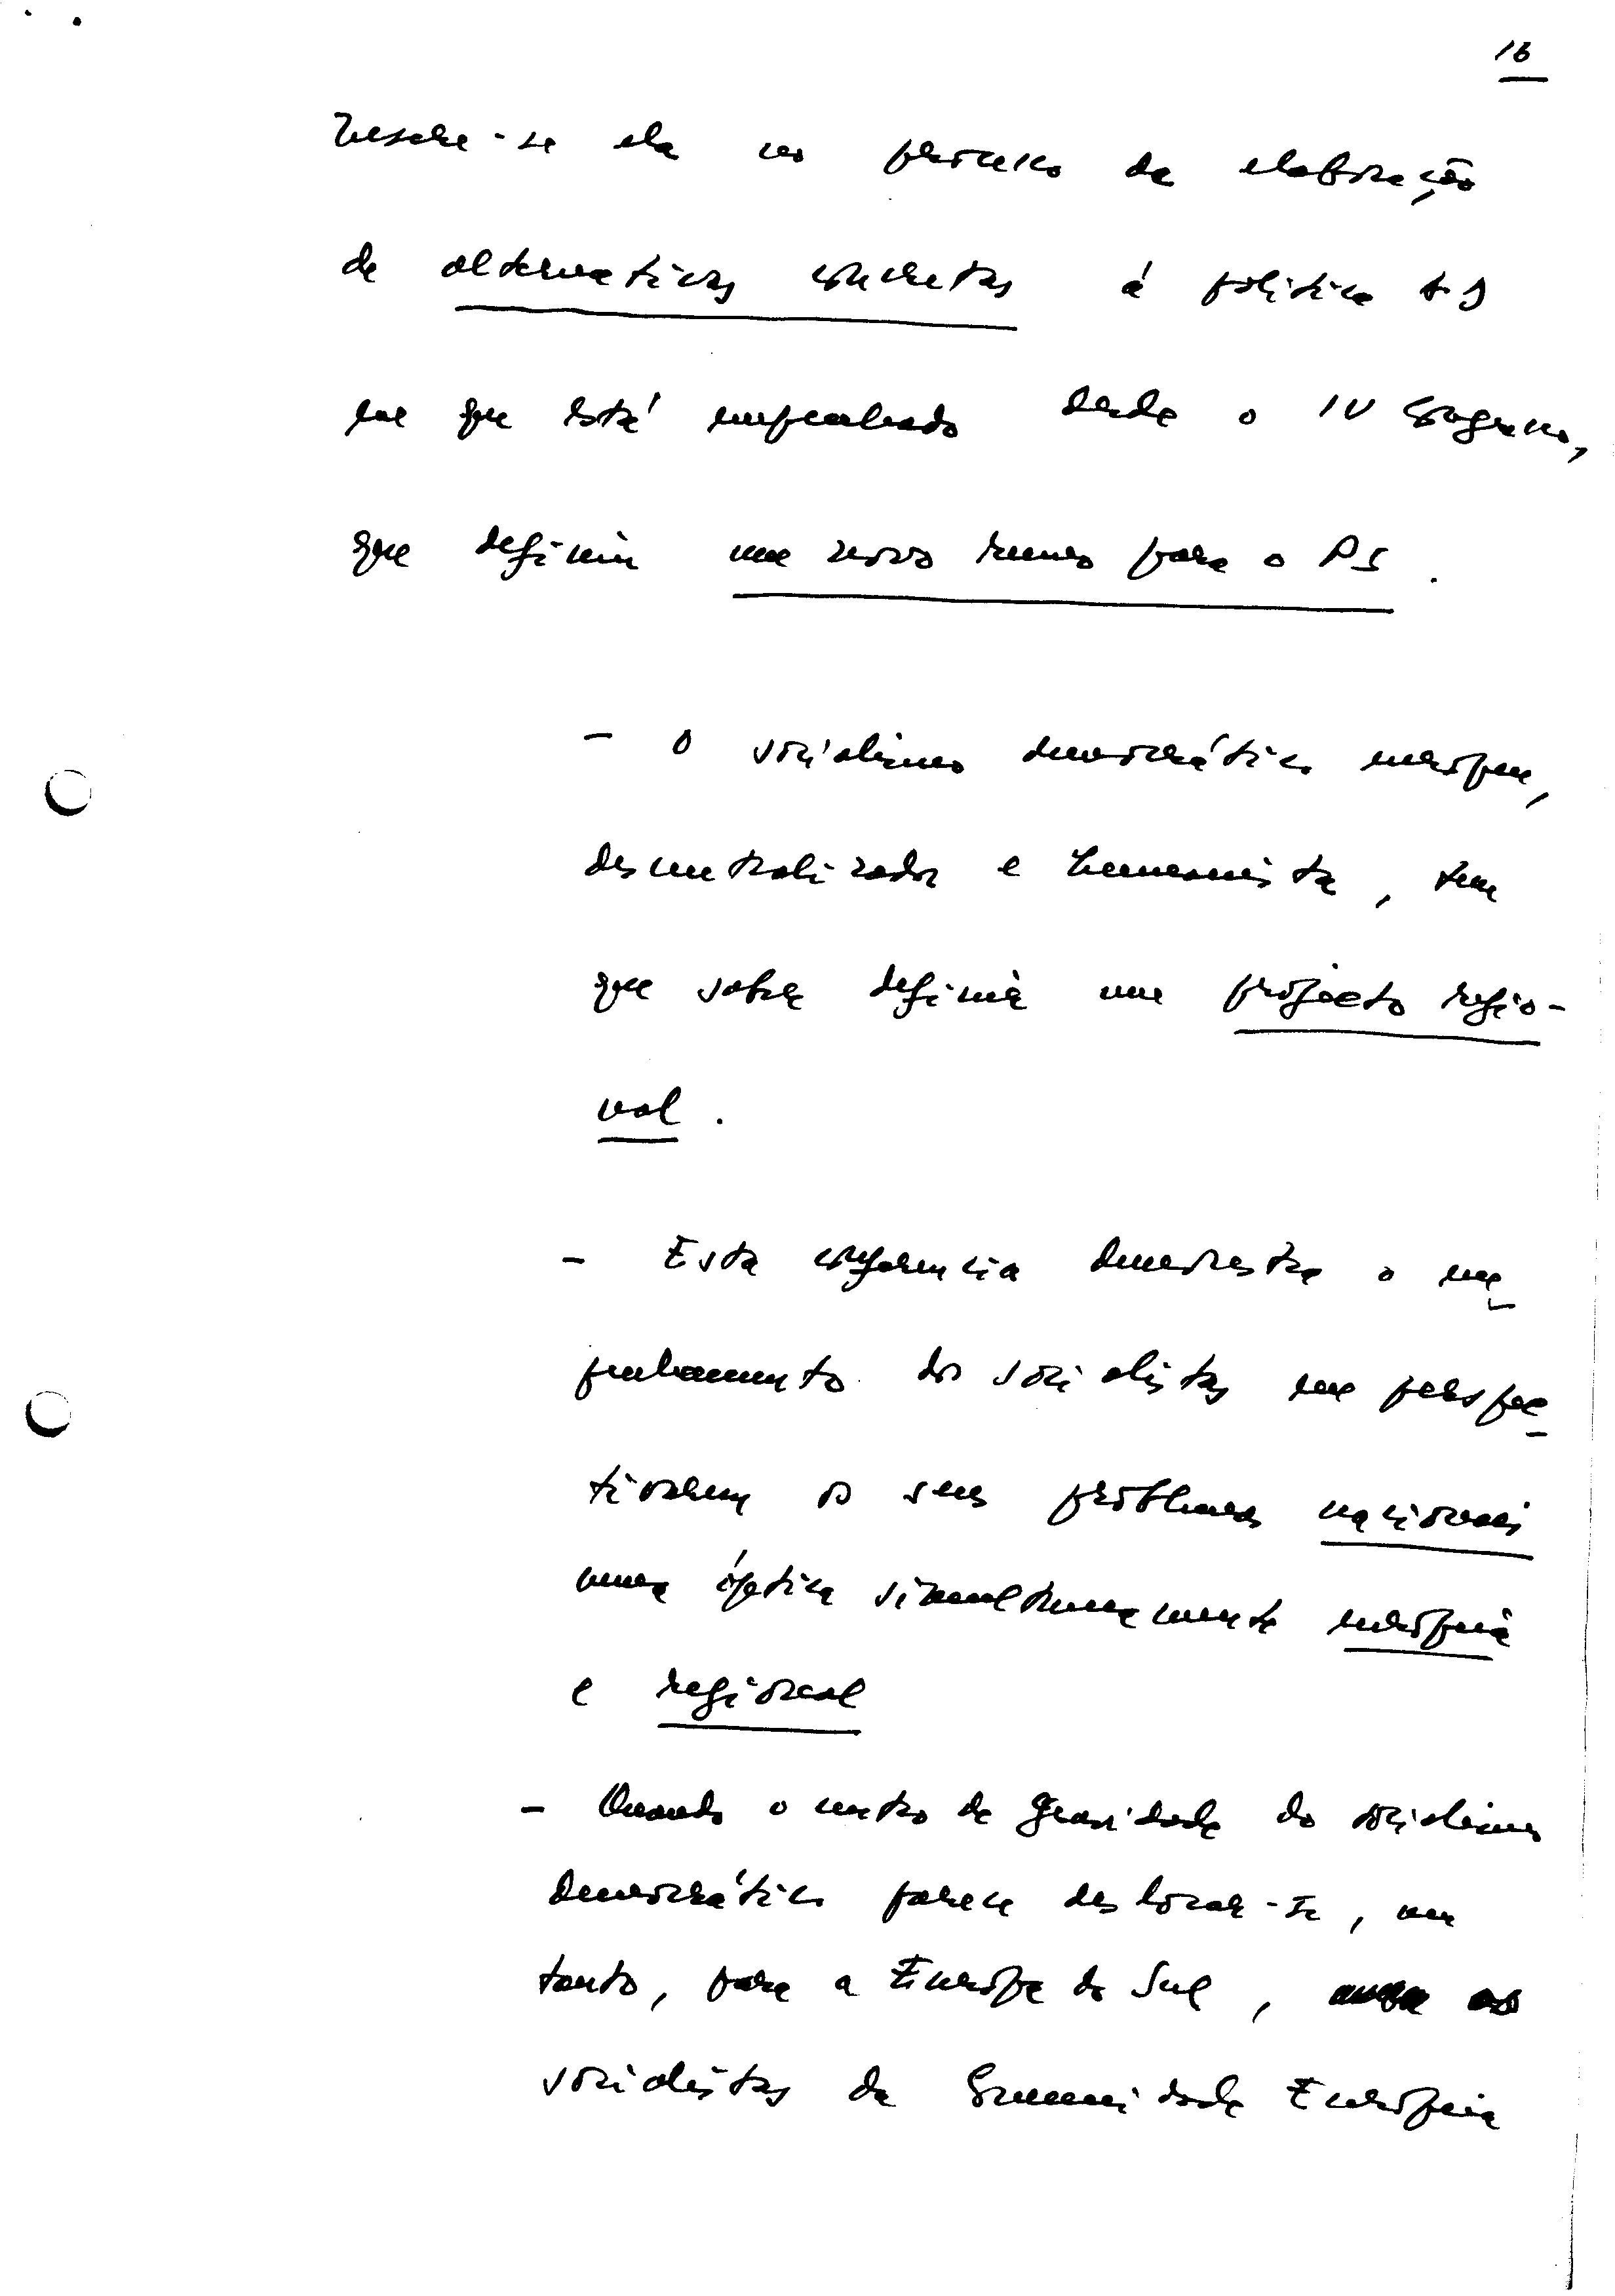 16
Insere-se ela no processo de elaboração
de alternativas concretas à política AD
em que está empenhado desde o IV Congresso,
que definiu um novo rumo para o PS.
- O socialismo democrático europeu,
descentralizador e humanista, tem
que saber definir um projecto regio-
nal.
- Esta conferência demonstra o em
penhamento dos socialistas em perspec
tivarem os seus problemas nacionais
numa óptica simultaneamente europeia
e regional
- Quando o centro de gravidade do socialismo
democrático parece deslocar-se, um
tanto, para a Europa do Sul, os
socialistas da Comunidade Europeia